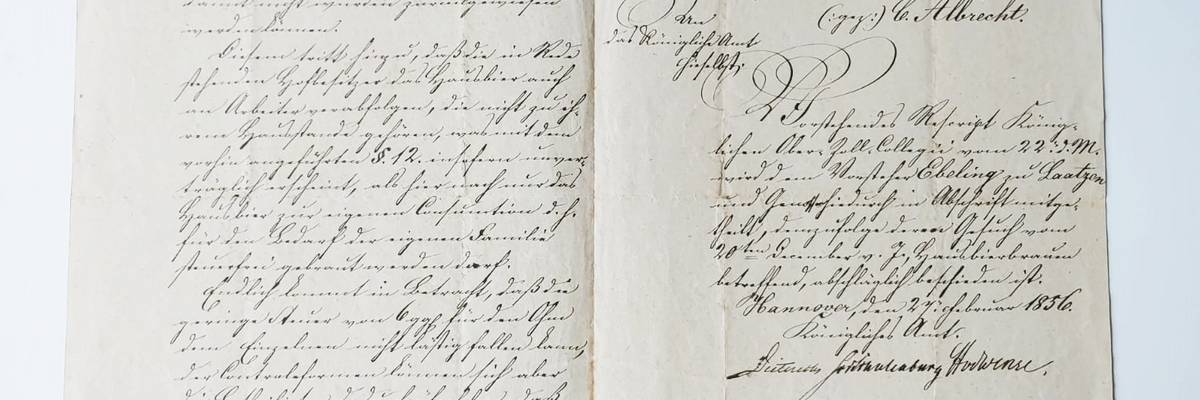 damit nicht wurden zurückgewiesen
werden können.
Diesem tritt hinzu, daß die in Rede
stehenden Hofbesitzer das Hausbier auch
an Arbeiter verabfolgen, die nicht zu ih-
rem Hausstande gehören, was mit dem
vorhin angeführten §. 12. insofern unver-
träglich erscheint, als hier nach nur das
Hausbier zur eigenen Consumtion d. h.
für den Bedarf der eigenen Familie
steuerfrei gebraut werden darf.
Endlich kommt in Betracht, daß die
geringe Steuer von 6 ggr für den Ohm
dem Einzelnen nicht lästig fallen kann,
der Controleformen können sich aber
daß
(:gez:) C. Albrecht.
An
das Königliche Amt
hieselbst.
Vorstehendes Rescript König-
lichen Ober-Zoll-Collegii vom 22 d. M.
wird dem Vorsteher Ebeling zu Laatzen
und Gen. hiedurch in Abschrift mitge-
theilt, demzufolge deren Gesuch vom
20ten December v. J., Hausbierbrauen
betreffend, abschläglich beschieden ist.
Hannover, den 27 Februar 1856.
Königliches Amt.